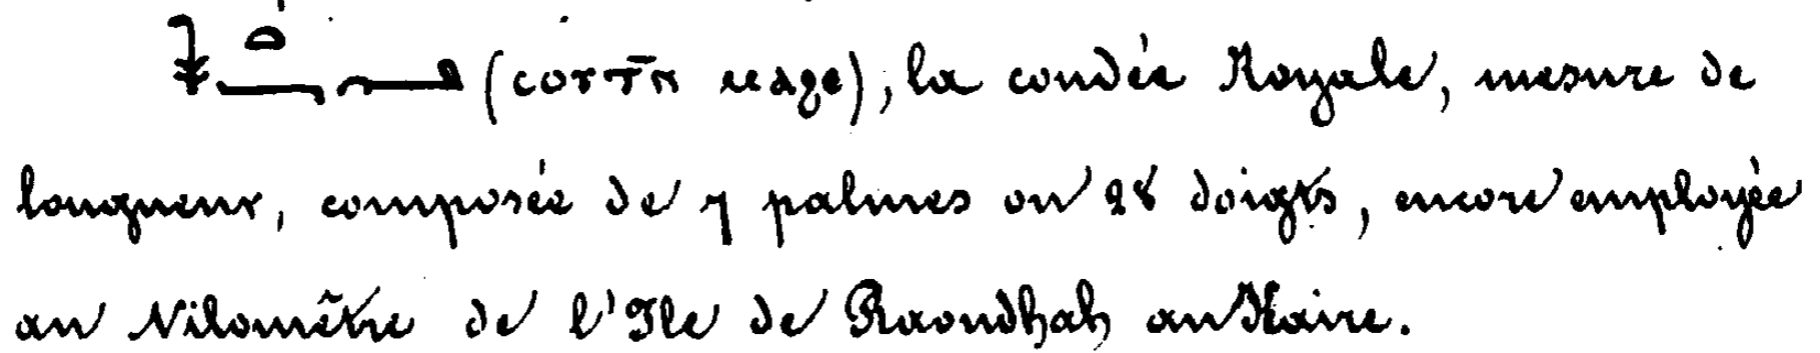 (ⲥⲟⲩⲧⲛ ⲙⲁϩⲉ), la coudée Royale, mesure de
longueur, composée de 7 palmes ou 28 doigts, encore employée
au Nilomètre de l'Ile de Raoudhah au Kaire.